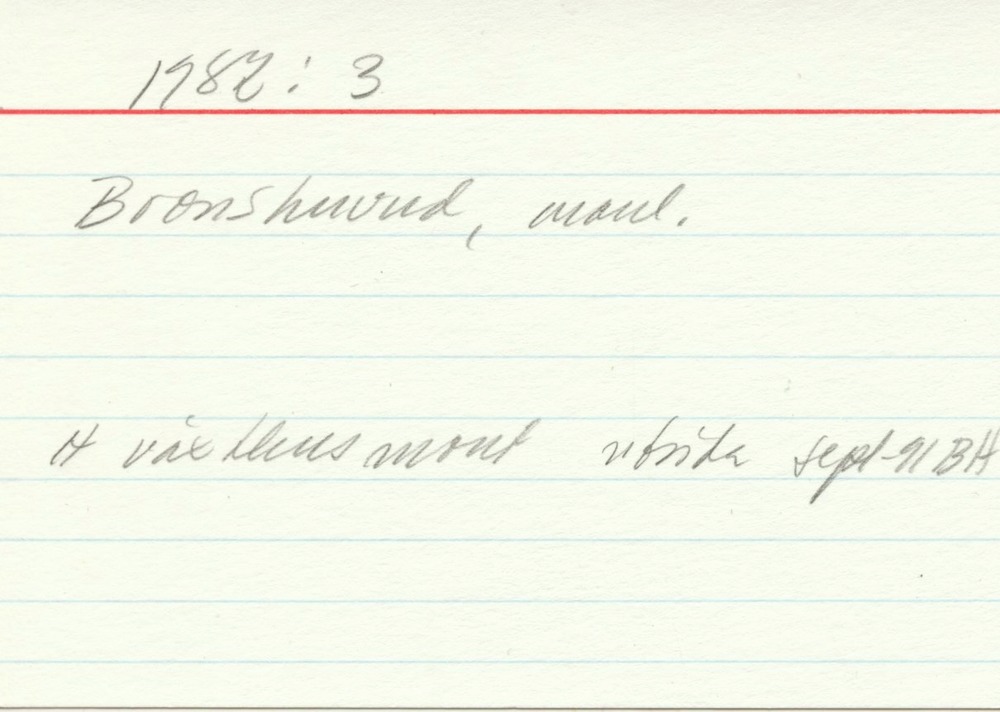 1982: 3
Bronshuvud, mank.
H växthusmont utsida sept-91 BH